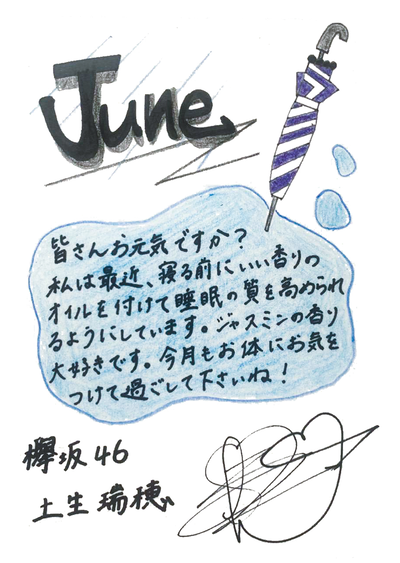 June
皆さんお元気ですか？
私は最近、寝る前にいい香りの
オイルを付けて睡眠の質を高められ
るようにしています。ジャスミンの香り
大好きです。今月もお体にお気を
つけて過ごして下さいね！
欅坂46
土生瑞穂